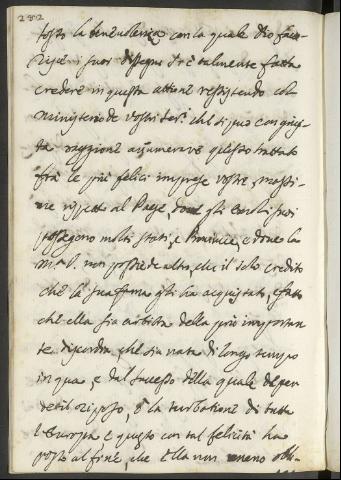 282
tosto la beneuolenza con la quale Dio fauo-
risce i suoi disegni s'è talmente fatta
credere in questa attione resistendo col
ministerio de vostri ser.i che si può con giu
ta raggione annumerare questo trattato
fra le più felici imprese vostre, massi-
me rispetto al Paese, doue gli suoi
posseggono molti stati, e Prouincie, e doue la
M.tà V. non possiede altro, che il solo credito
che la sua fama gli ha acquistato, e fatto
ch'ella sia arbitra della più importan
te discordia, che sia nata di longo tempo
in qua, e dal successo della quale depen
deua il riposo, ò la turbatione di tutta
l'Europa, e questo con tal felicità ha
posto al fine, che Ella non meno obli-